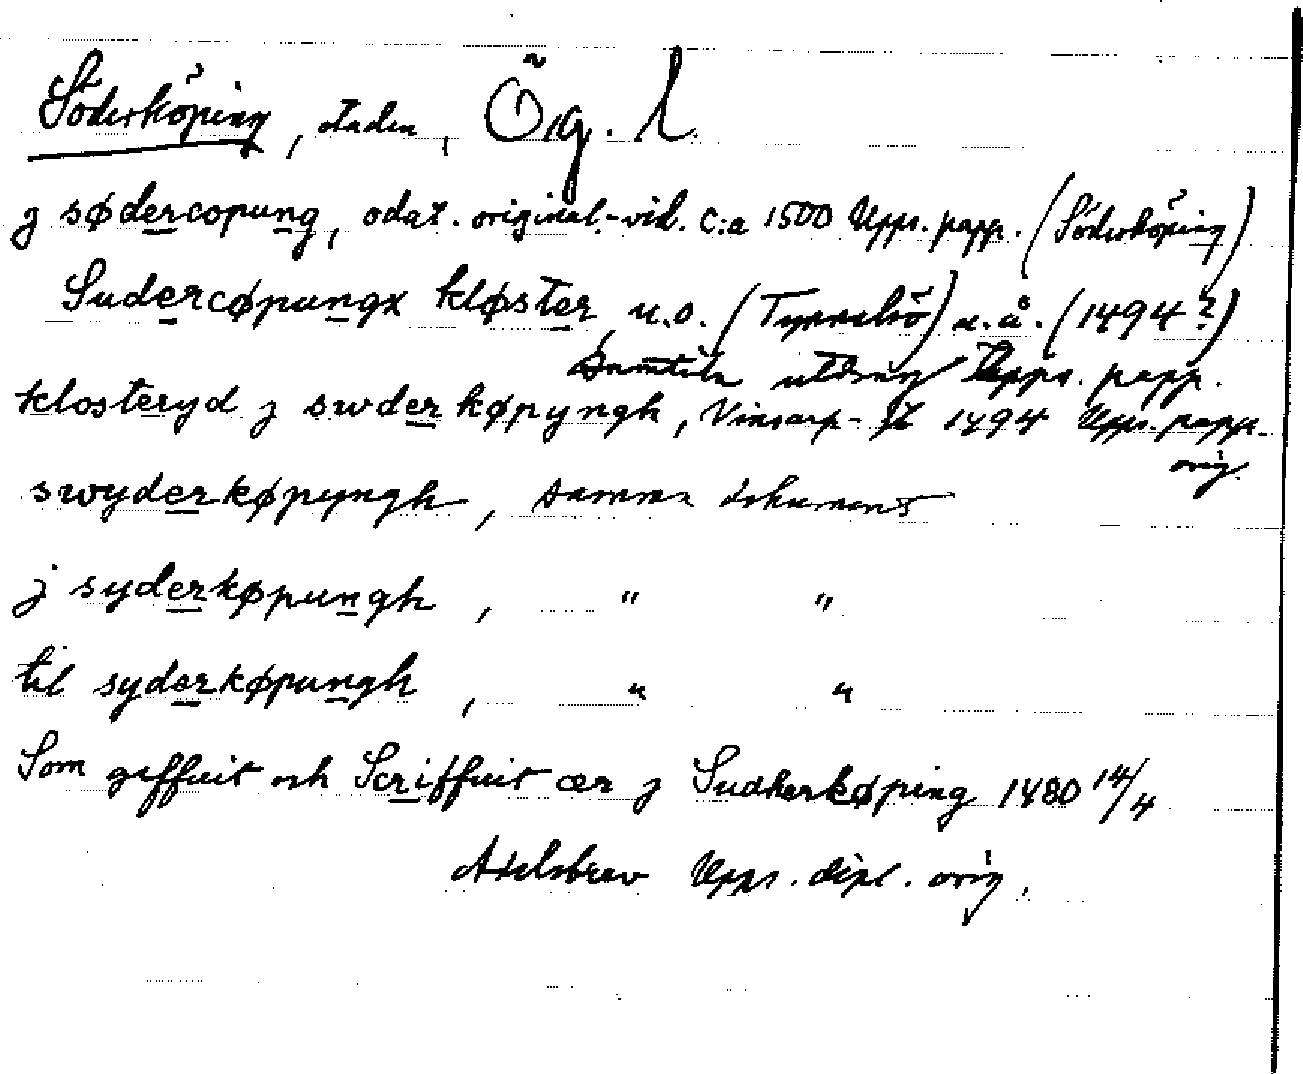 Söderköping, staden, Ög. l.
j sødercopung, odat. original-vid. c:a 1500 Upps. papp. (Söderköping)
Sudercøpungx kløster, u.o. (Tynnelsö) u.å. (1494?)
Samtida utdrag Upps. papp.
klosteryd j swderkøpyngh, Vinsarp- 1494 Upps. papp.
orig.
swyderkøpyngh, samma dokument
j syderkøpungh, " "
til syderkøpungh, " "
Som geffuit och Scriffuit ær j Sudherkøping 1480 14/4
Adelsbrev Upps. dipl. orig.